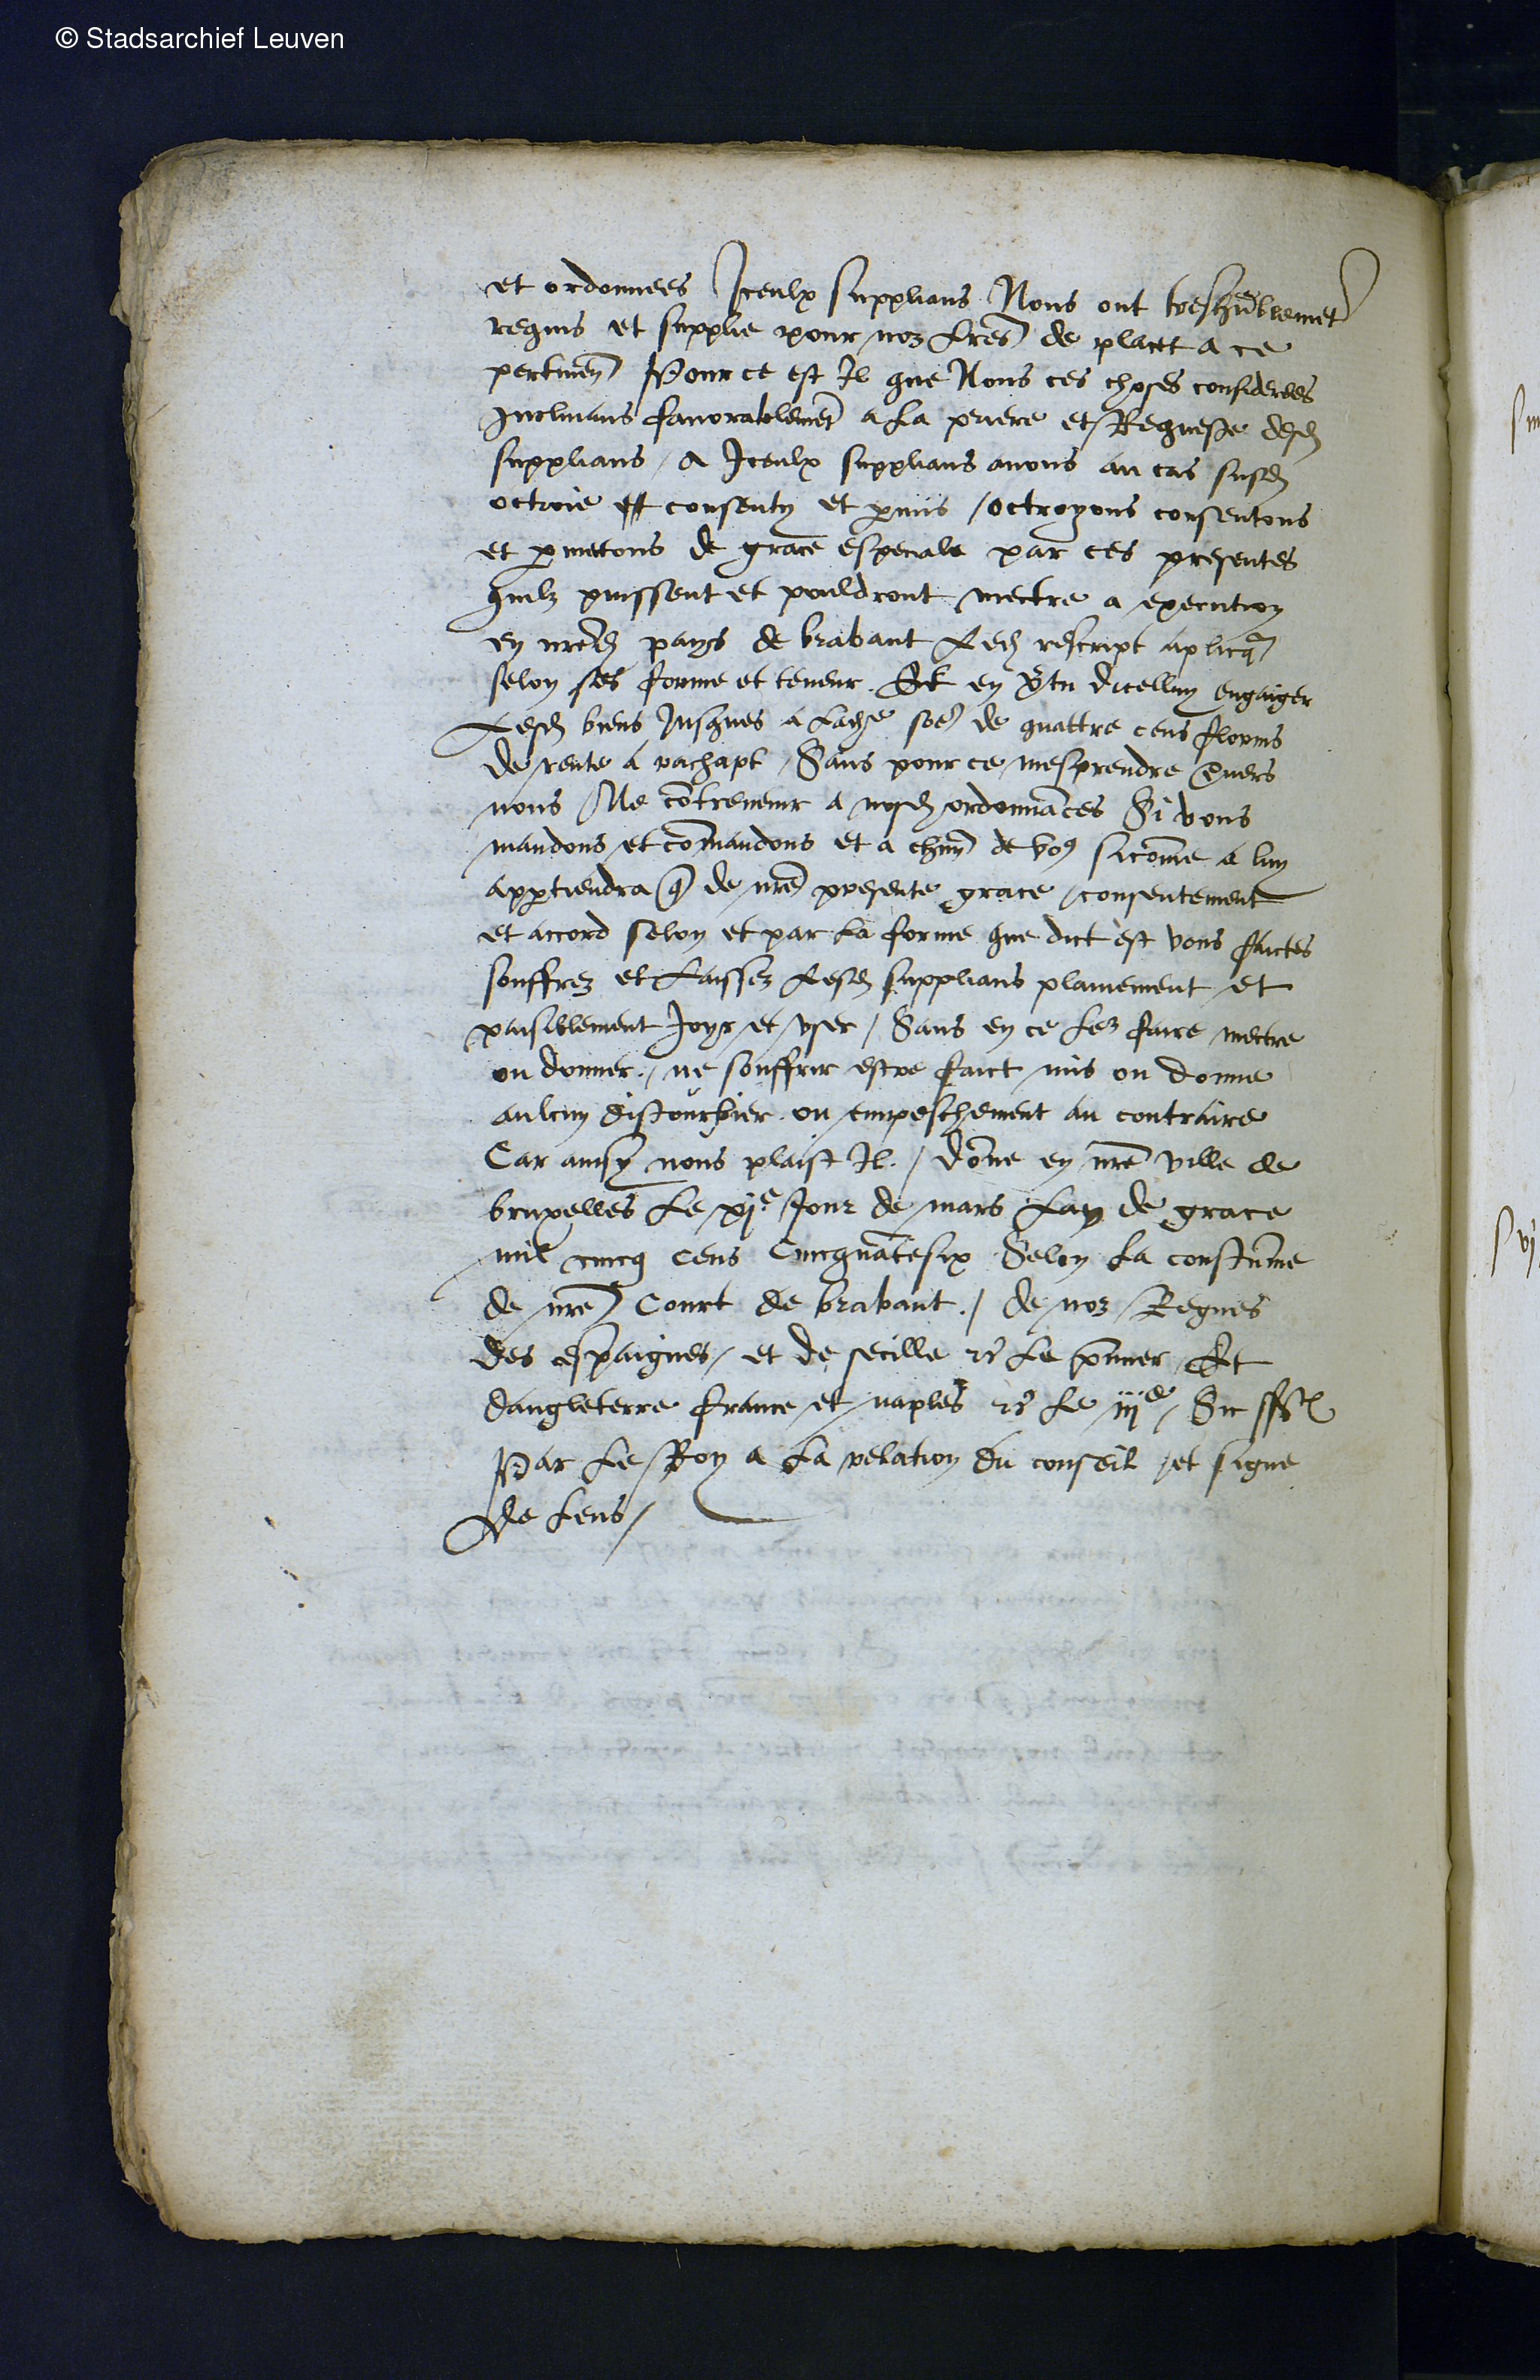 © Stadsarchief Leuven
et ordonnees Iceulx supplians Nous ont treshublemet
requis et supplie pour noz lres de placet a ce
pertinen Pour ce est Il que Nous ces choses considerees
Inclinans favorablemet a la priere et Requeste desd
supplians / a Iceulx supplians avons au cas susd
octroie et consenty et pmis / octroyons consentons
et pmetons de grace especiale par ces presentes
quilz puissent et pouldront mectre a execution
en nred pays de brabant led rescript aplicq
selon ses forme et teneur. Et en vtu dicelluy engaiger
Lesd biens Jusques a lad soe de quattre cens florins
de rente a rachapt / Sans pour ce mesprendre Envers
nous Ne contrevenir a nosd ordonnaces Si vous
mandons et comandons et a chun de vos sicome a luy
apptiendra q de nre presente grace / consentement
et accord selon et par la forme que dict est vous faictes
souffrez et laissez lesd supplians plainement et
paisiblement Joyr et vser / Sans en ce lez faire mectre
ou donner / ne souffrir estre faict mis ou donne
aulcun distourbier ou empeschement au contraire
Car ainsy nous plaist Il. / Done en nre ville de
bruxelles le xje Jour de mars Lan de grace
mil cincq cens Cincquatesix Selon la coustume
de nre Court de brabant. / de noz Regnes
des espaignes / et de secille rc le pmier Et
dangleterre france et naples rc le iije / Sic sst
Par le Roy a la relation du conseil / et signe
de Lens /
vj